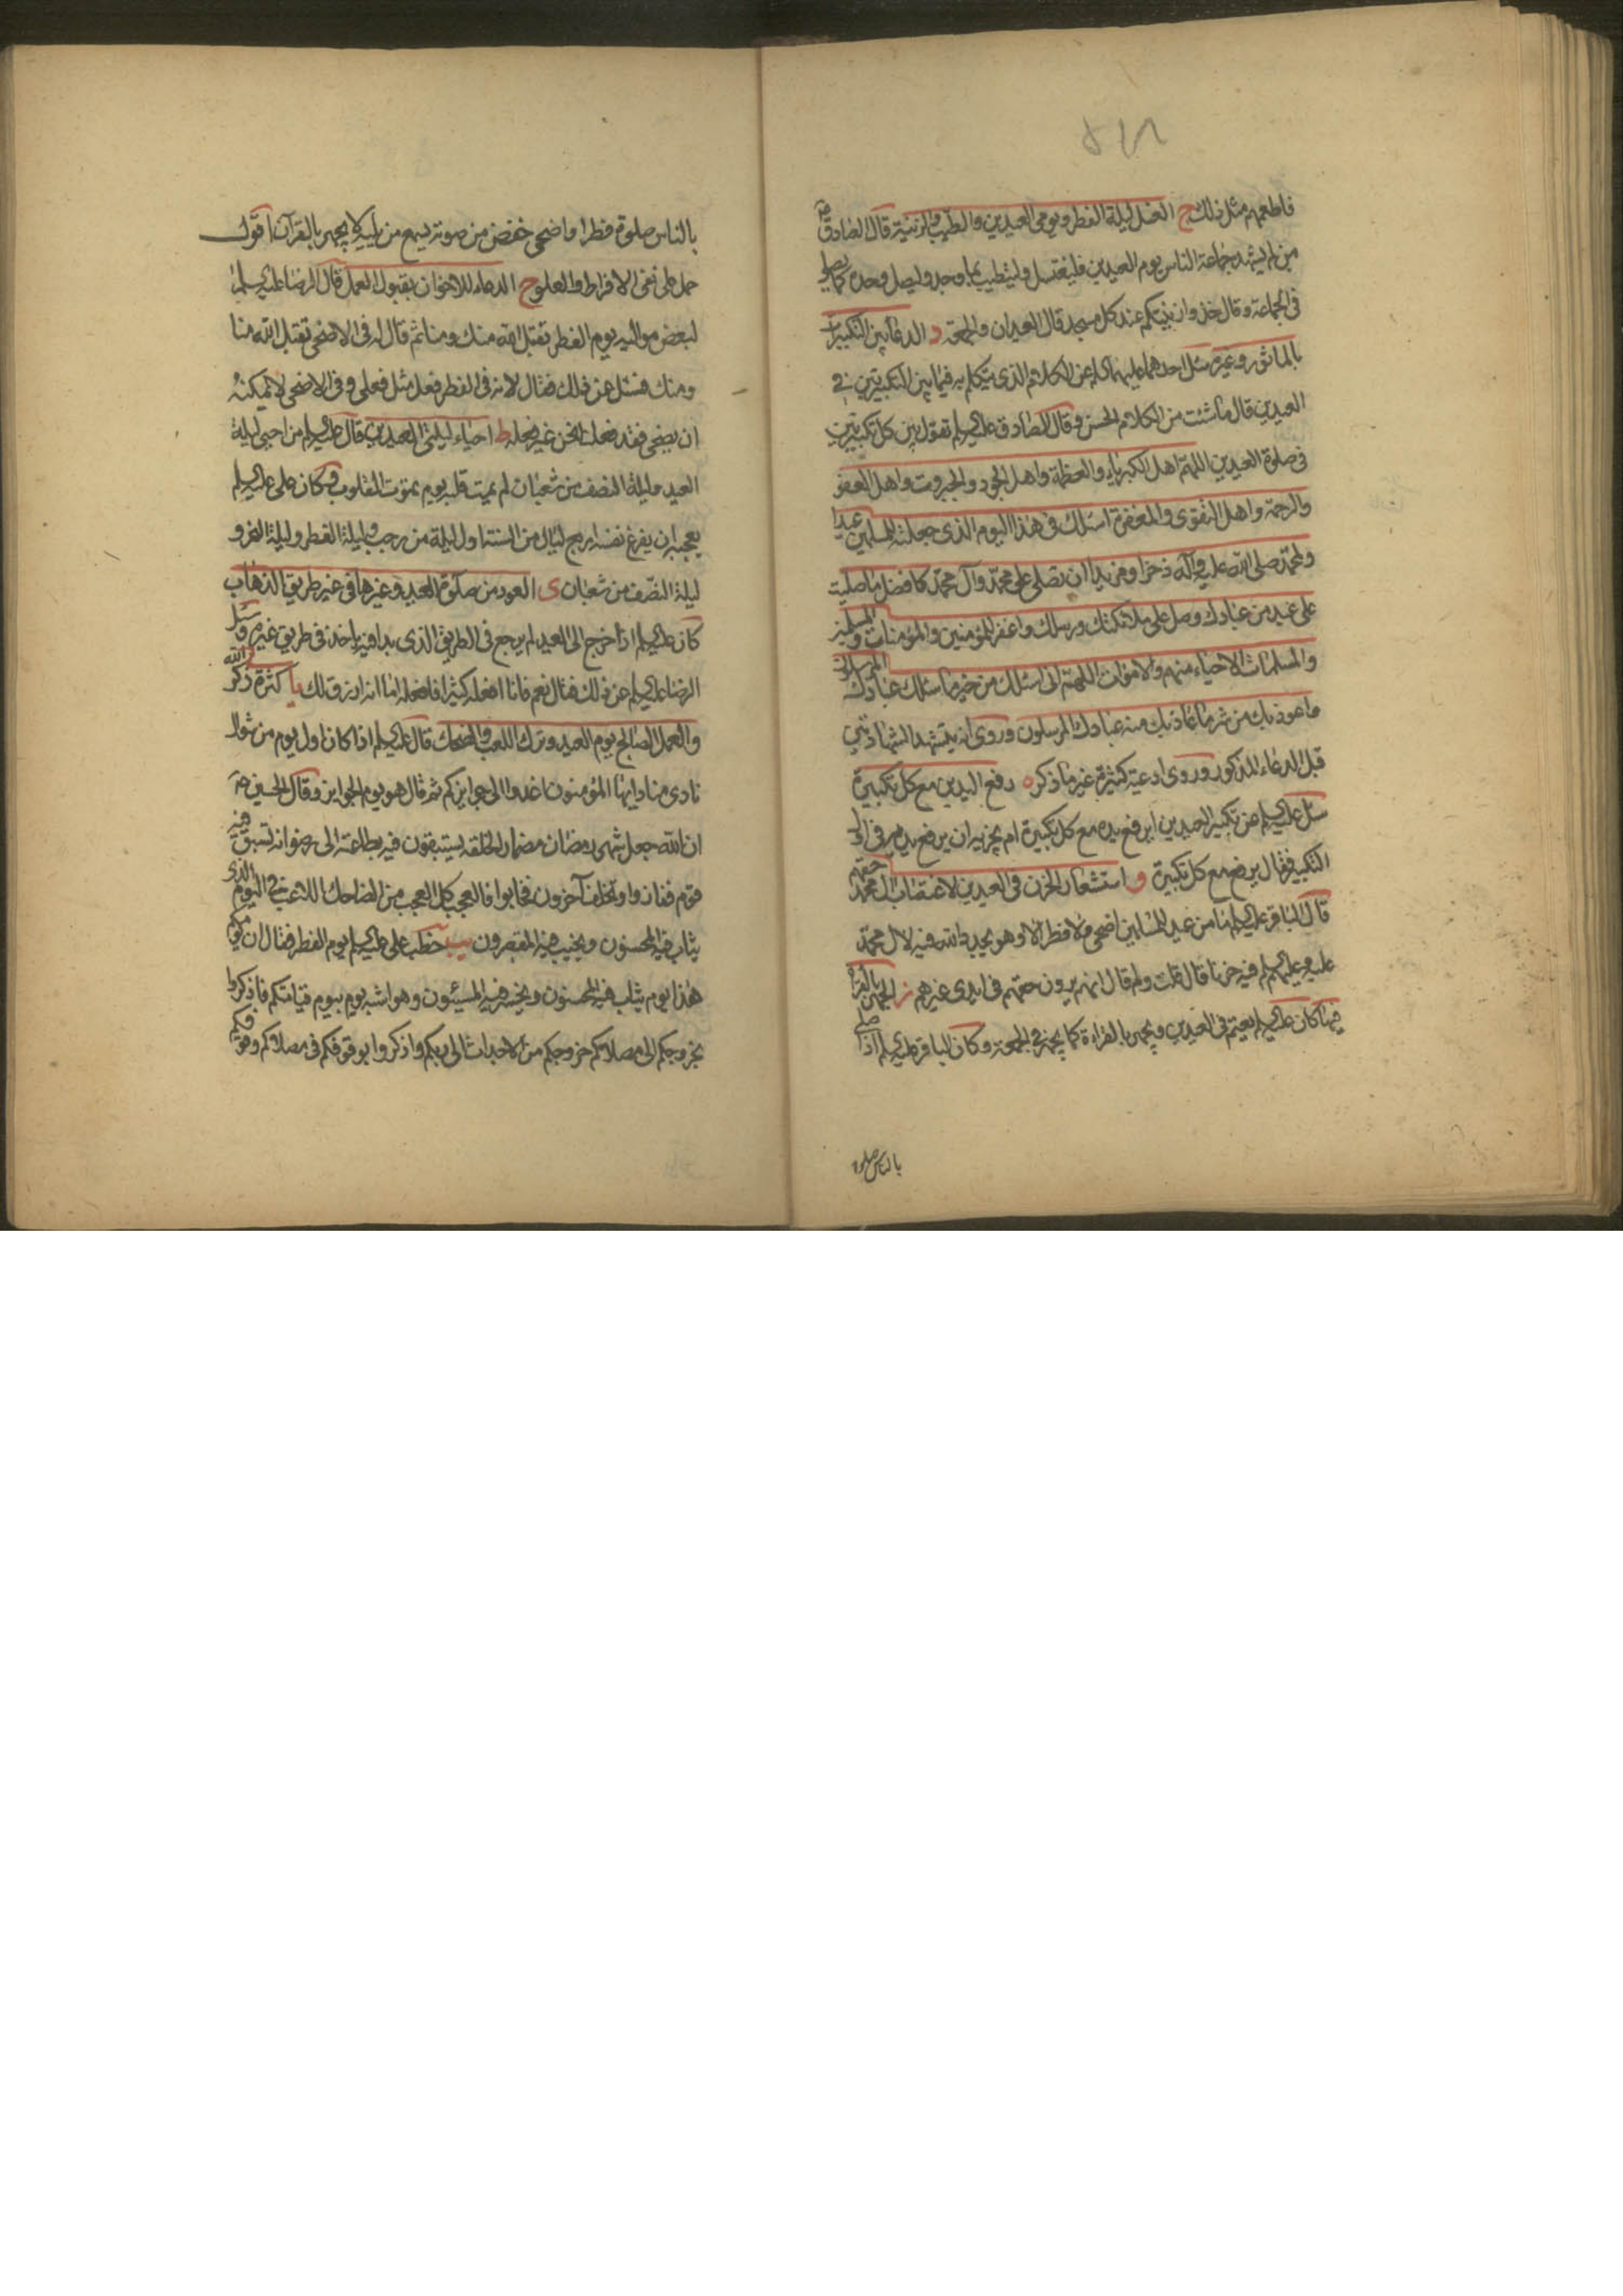 فاطعمهم مثل ذلك ج الغسل ليلة الفطر ويومى العيدين والطيب والزينة قال الصادق ع
من لم يشهد جماعة الناس يوم العيدين فليغتسل وليتطيب بما وجد وليصل وحده كما يصلى
فى الجماعة وقال خذوا زينتكم عند كل مسجد قال العيدان والجمعة د الدعا بين التكبيرات
بالماثور وغيره سئل احدهما عليهما السلام عن الكلام الذى يتكلم به فيما بين التكبيرتين فى
العيدين قال ما شئت من الكلام الحسن وقال الصادق عليه السلام تقول بين كل تكبيرتين
فى صلوة العيدين اللهم اهل الكبرياء والعظمة واهل الجود والجبروت واهل العفو
والرحمة واهل التقوى والمغفرة اسئلك فى هذا اليوم الذى جعلته للمسلمين عيدا
ولمحمد صلى الله عليه وآله ذخرا ومزيدا ان تصلى على محمد وآل محمد كافضل ما صليت
على عبد من عبادك وصل على ملائكتك ورسلك واغفر للمؤمنين والمؤمنات والمسلمين
والمسلمات الاحياء منهم والاموات اللهم انى اسئلك من خير ما سئلك عبادك المرسلون
واعوذ بك من شر ما عاذ بك منه عبادك المرسلون وروى انه يتشهد الشهادتين
قبل الدعاء المذكور وروى ادعية كثيرة غير ما ذكر ه رفع اليدين مع كل تكبيرة
سئل عليه السلام عن تكبير العيدين ايرفع يده مع كل تكبيرة ام يجزيه ان يرفع يديه فى اول
التكبير فقال يرفع مع كل تكبيرة و استشعار الحزن فى العيدين لاغتصاب آل محمد حقهم
قال الباقر عليه السلام ما من عيد للمسلمين اضحى ولا فطر الا وهو يجدد الله فيه لآل محمد
عليه وعليهم السلام فيه حزنا قال قلت ولم قال انهم يرون حقهم فى ايدى غيرهم ز الجهر بالقراءة
فيهما كان عليه السلام يعتم فى العيدين ويجهر بالقراءة كما يجهر فى الجمعة وكان الباقر عليه السلام اذا صلى
بالناس صلوة
بالناس صلوة فطر او اضحى خفض من صوته يسمع من يليه لا يجهر بالقرآن اقول
حمل على نفى الافراط والعلو ح الدعاء للاخوان بقبول العمل قال الرضا عليه السلام
لبعض مواليه يوم الفطر تقبل الله منك ومنا ثم قال له فى الاضحى تقبل الله منا
ومنك فسئل عن ذلك فقال لانه فى الفطر فعل مثل فعلى وفى الاضحى لا يمكنه
ان يضحى فقد فعلت نحن غير فعله ط احياء ليلتى العيدين قال عليه السلام من احيى ليلة
العيد وليلة النصف من شعبان لم يمت قلبه يوم يموت القلوب وكان على عليه السلام
يعجبه ان يفرغ نفسه اربع ليال من السنة اول ليلة من رجب وليلة الفطر وليلة النحر و
ليلة النصف من شعبان ى العود من صلوة العيد وغيرها فى غير طريق الذهاب
كان عليه السلام اذا خرج الى العيد لم يرجع فى الطريق الذى بدا فيه ياخذ فى طريق غيره وسئل
الرضا عليه السلام عن ذلك فقال نعم فانا افعله كثيرا فافعله اما انه ارزق لك يا كثرة ذكر الله
والعمل الصالح يوم العيد وترك اللعب والضحك قال عليه السلام اذا كان اول يوم من شوال
نادى مناد ايها المؤمنون اغدوا الى جوايزكم ثم قال هو يوم الجوايز وقال الحسين ع
ان الله جعل شهر رمضان مضمار لخلقه يستبقون فيه بطاعته الى رضوانه فسبق فيه
قوم ففازوا وتخلف آخرون فخابوا فالعجب كل العجب من الضاحك اللاعب فى اليوم الذى
يثاب فيه المحسنون ويخيب فيه المقصرون يب خطب على عليه السلام يوم الفطر فقال ان يومكم
هذا يوم يثاب فيه المحسنون ويخسر فيه المسيئون وهو اشبه يوم بيوم قيامتكم فاذكروا
بخروجكم الى مصلاكم خروجكم من الاجداث الى ربكم واذكروا بوقوفكم فى مصلاكم وقوفكم